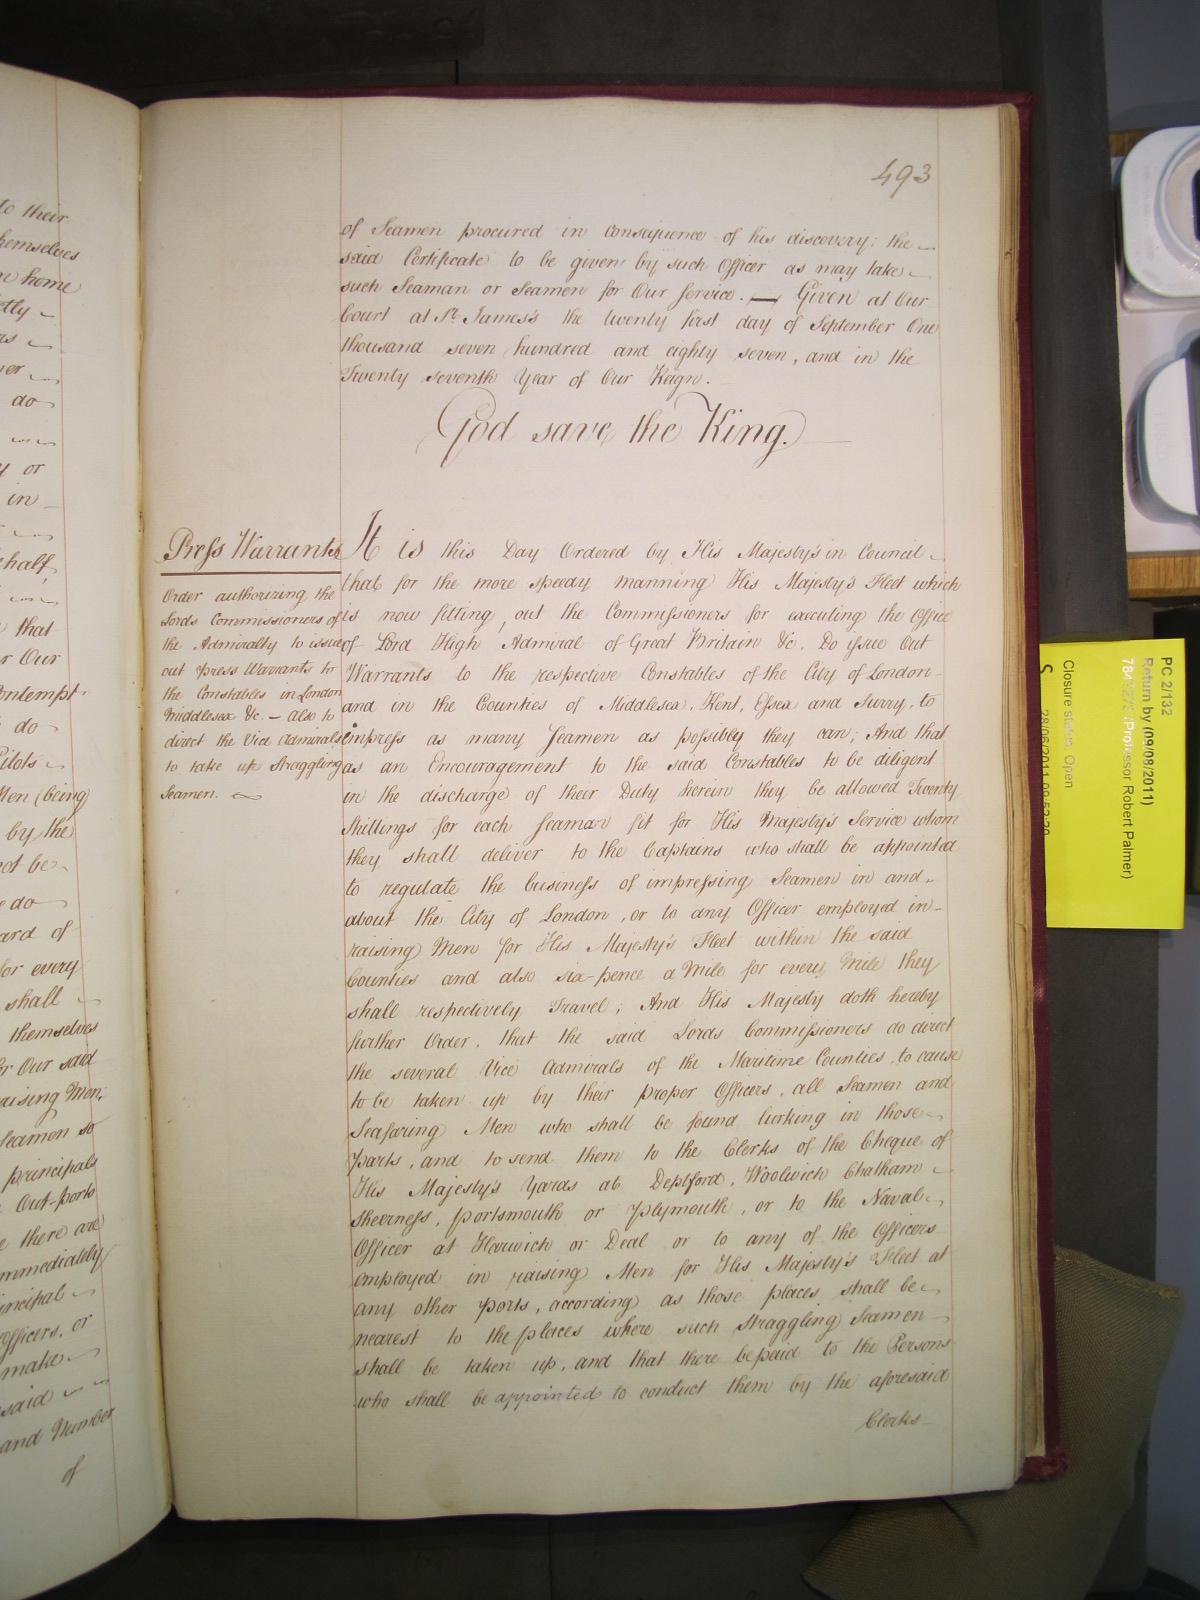 to their
themselves
home
do
y or
in
ehalf,
that
r Our
ontempt
do
Pilots
Men (being)
by the
not be
do
ard of
for every
shall
themselves
or Our said
aising Men,
Seamen so
principals
Out-ports
e there are
mmediately
incipal
Officers, or
make
said
and Number
of
493
of Seamen procured in Consequence of his discovery: the
said Certificate to be given by such Officer as may take
such Seaman or Seamen for Our Service. — Given at Our
Court at St. James's the twenty first day of September One
thousand seven hundred and eighty seven, and in the
Twenty seventh Year of Our Reign.
God save the King.
Press Warrants
Order authorizing the
Lords Commissioners of
the Admiralty to issue
out Press Warrants to
the Constables in London
Middlesex &c. — Also to
direct the Vice Admirals
to take up Straggling
Seamen.
It is this Day Ordered by His Majesty's in Council
that for the more speedy manning His Majesty's Fleet which
is now fitting out the Commissioners for executing the Office
of Lord High Admiral of Great Britain &c. Do issue out
Warrants to the respective Constables of the City of London
and in the Counties of Middlesex, Kent, Essex and Surry, to
impress as many Seamen as possibly they can; And that
as an Encouragement to the said Constables to be diligent
in the discharge of their Duty herein they be allowed Twenty
Shillings for each Seaman fit for His Majesty's Service whom
they shall deliver to the Captains who shall be appointed
to regulate the business of impressing Seamen in and
about the City of London, or to any Officer employed in
raising Men for His Majesty's Fleet within the said
Counties and also six-pence a Mile for every Mile they
shall respectively Travel; And His Majesty doth hereby
further Order, that the said Lords Commissioners do direct
the several Vice Admirals of the Maritime Counties, to cause
to be taken up by their proper Officers, all Seamen and
Seafaring Men who shall be found lurking in those
Parts, and to send them to the Clerks of the Cheque of
His Majesty's Yards at Deptford, Woolwich Chatham
Sheerness, Portsmouth or Plymouth, or to the Naval
Officer at Harwich or Deal or to any of the Officers
employed in raising Men for His Majesty's Fleet at
any other Ports, according as those places shall be
nearest to the places where such Straggling Seamen
shall be taken up, and that there be paid to the Persons
who shall be appointed to conduct them by the aforesaid
Clerks
PC 2/132
Return by (09/08/2011)
(Professor Robert Palmer)
Closure status: Open
S
28/06/2011